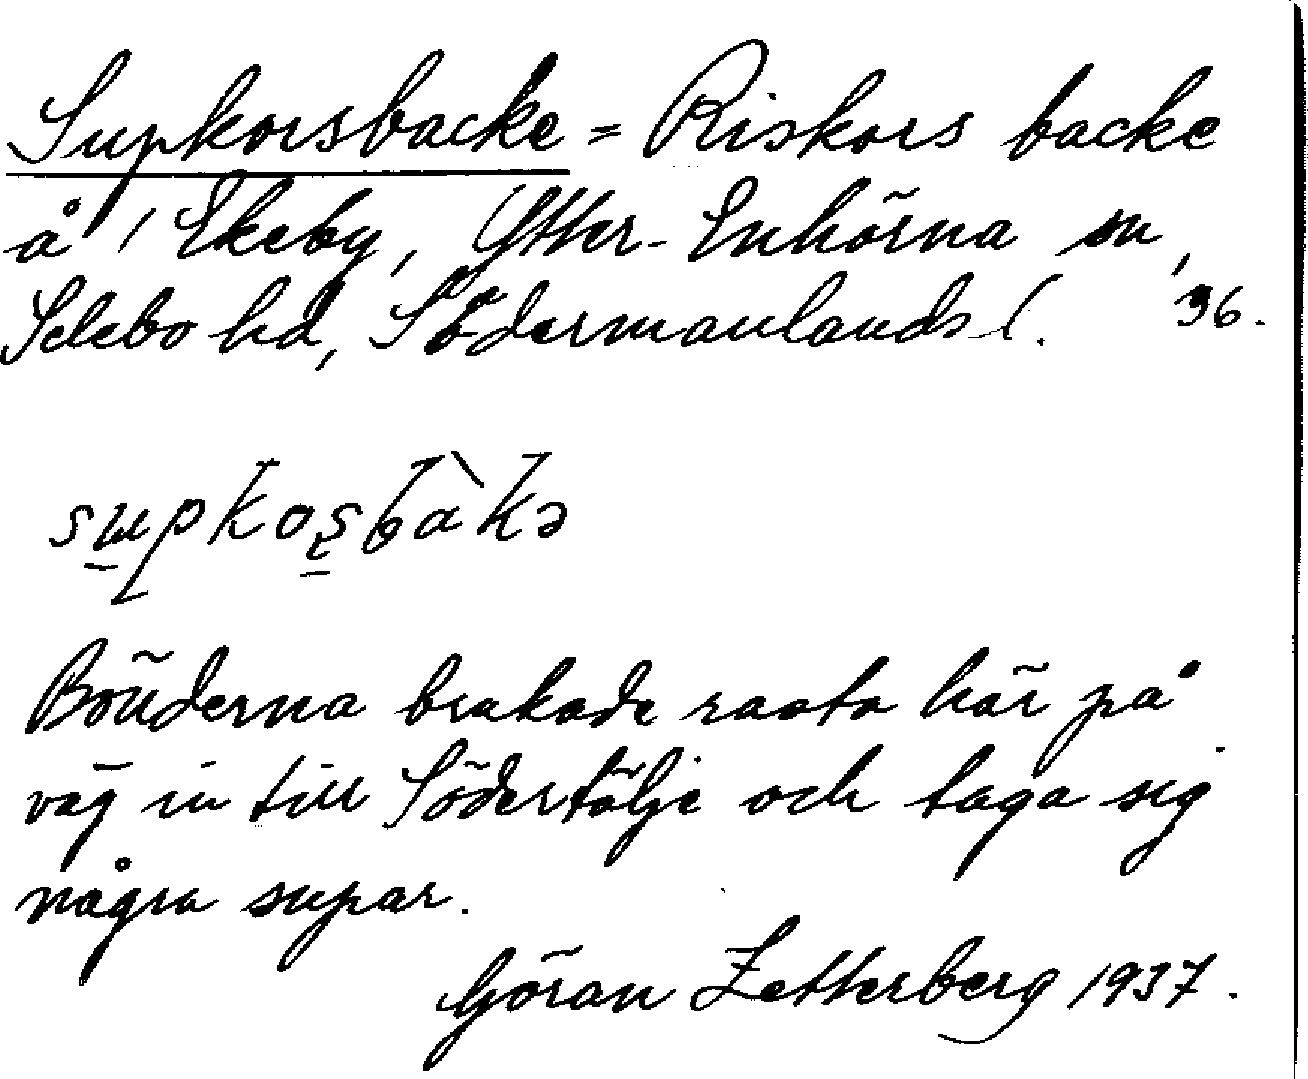 Supkorsbacke = Riskors backe
å / Ekeby, Ytter-Enhörna sn,
Selebo hd, Södermanlands l. 96.
supkosbàkə
Bönderna brukade rasta här på
väg in till Södertälje och taga sig
några supar.
Göran Zetterberg 1937.